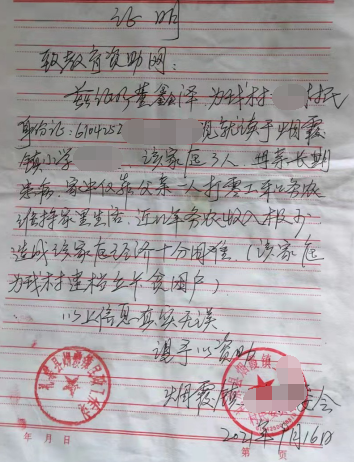 证明
致教育资助网:
兹证明董鑫泽,为我村 村民
身份证:6104252 现就读于烟霞
镇小学 该家庭3人 母亲长期
患病,家中仅靠父亲一人打零工和务农
维持家里生活,近几年务农收入极少
造成该家庭经济十分困难(该家庭
为我村建档立卡贫困户)
以上信息真实无误
请予以资助
烟霞镇 委会
2021年1月16日
年 月 日
第 页